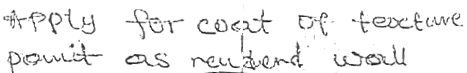 Apply for coat of texture
pamit as rewdend wall